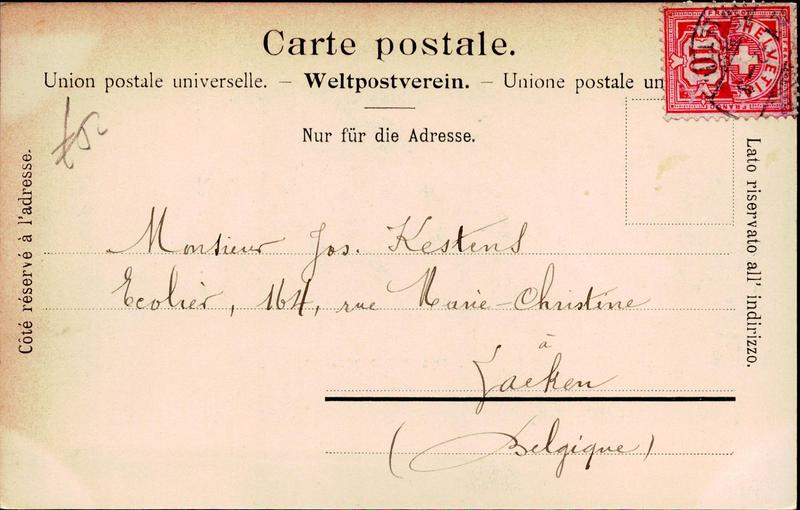 Carte postale.
Union postale universelle. – Weltpostverein. – Unione postale un
Nur für die Adresse.
Côté réservé à l'adresse.
Lato riservato all' indirizzo.
FRANCO
HELVETIA
10
Monsieur Jos. Kestens
Ecolier, 164, rue Marie-Christine
à
Laeken
(Belgique)